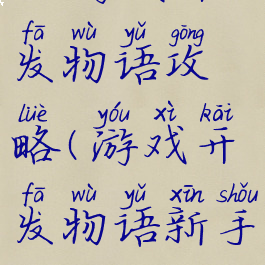 fā wù yǔ gōng
发物语攻
lüè yóu xì kāi
略(游戏开
fā wù yǔ xīn shǒu
发物语新手